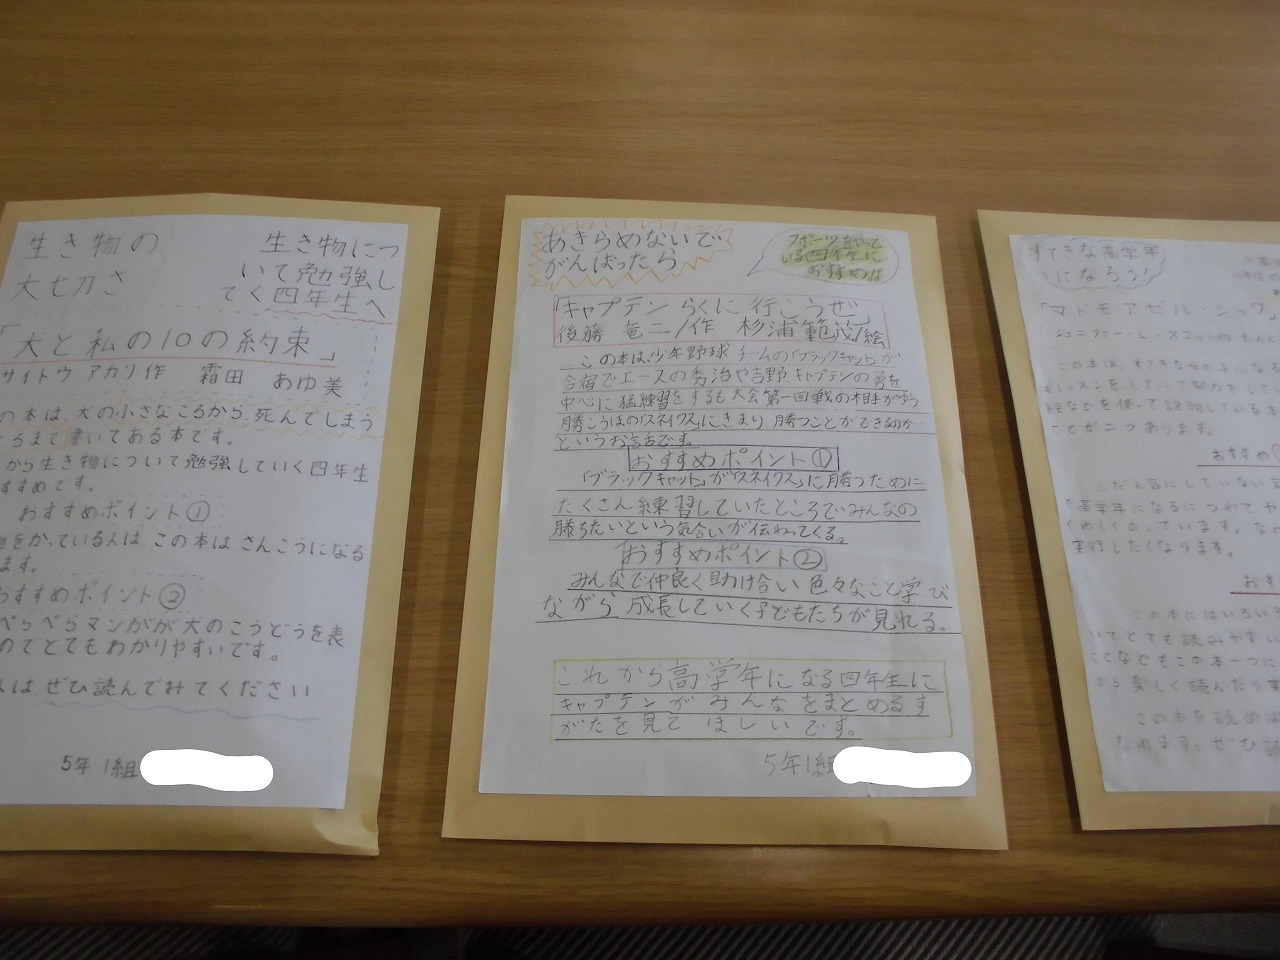 生き物の
大切さ
生き物につ
いて勉強し
てく四年生へ
「犬と私の10の約束」
サイトウ アカリ作 霜田 あゆ美
の本は、犬の小さなころから、死んでしまう
ころまで書いてある本です。
から生き物について勉強していく四年生
すすめです。
おすすめポイント①
物をかっている人は、この本は さんこうになる
ます。
おすすめポイント②
ぺらぺらマンガが犬のこうどうを表
のでとてもわかりやすいです。
人は ぜひ読んでみてください
5年1組
あきらめないで
がんばったら
スポーツをやって
いる四年生に
おすすめ!!
「キャプテン らくに 行こうぜ」
後藤 竜二/作 杉浦 範茂/絵
この本は、少年野球チームの「ブラックキャット」が
合宿でエースの秀治や吉野、キャプテンの勇を
中心に猛練習をするも大会第一回戦の相手がゆう
勝こうほの「スネイクス」にきまり、勝つことができるのか…
というお話です。
おすすめポイント①
「ブラックキャット」が「スネイクス」に勝つために
たくさん練習していたところでみんなの
勝ちたいという気合いが伝わってくる。
おすすめポイント②
みんなで仲良く助け合い 色々なこと学び
ながら 成長していく子どもたちが見れる。
これから高学年になる四年生に
キャプテンが みんなをまとめるす
がたを見て ほしいです。
5年1組
すてきな高学年
になろう!
「マドモアゼル・シック」
ジェニファー・L・スコット作
この本は、すてきな女の子になる
レッスンをしていて努力をして
絵などを使って説明している本
ことが二つあります。
おすすめ
ふだん気にしていない
で高学年になるにつれてや
くわしくのっています。な
実行したくなります。
おす
この本にはいろいろ
いてとても読みやすい
ことなどもこの本一つに
から楽しく読んだり実
この本を読めば
なれます。ぜひ読